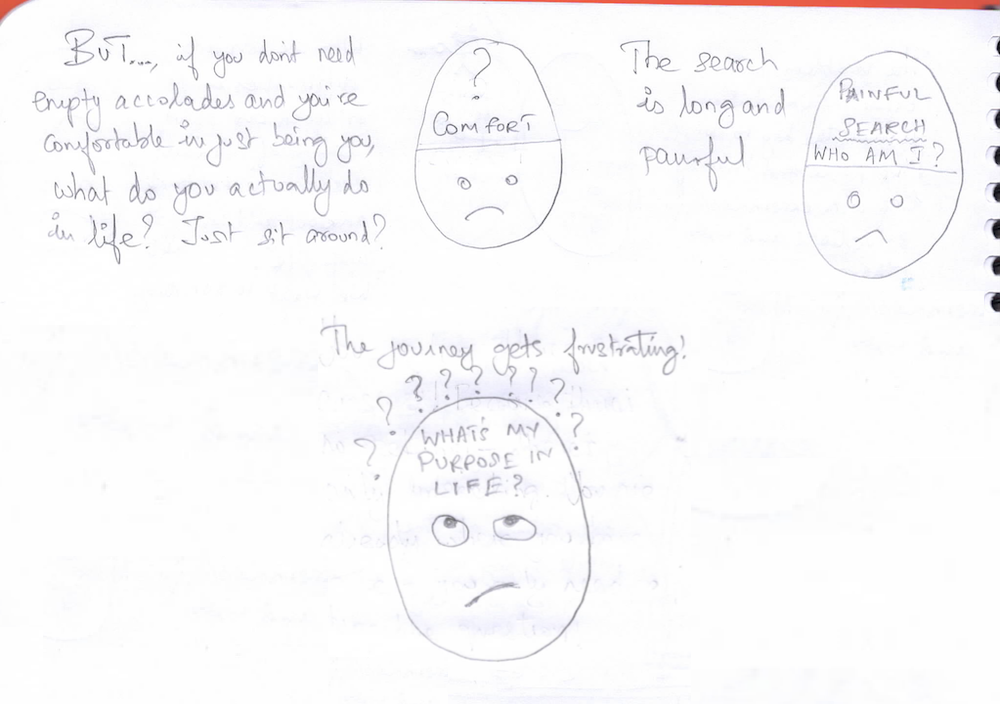 BUT...., if you don't need
empty accolades and you're
comfortable in just being you,
what do you actually do
in life? Just sit around?
?
COMFORT
The search
is long and
painful
PAINFUL
SEARCH
WHO AM I?
The journey gets frustrating!
? ? ? ? ? ? ? ? ?
WHAT'S MY
PURPOSE IN
LIFE?